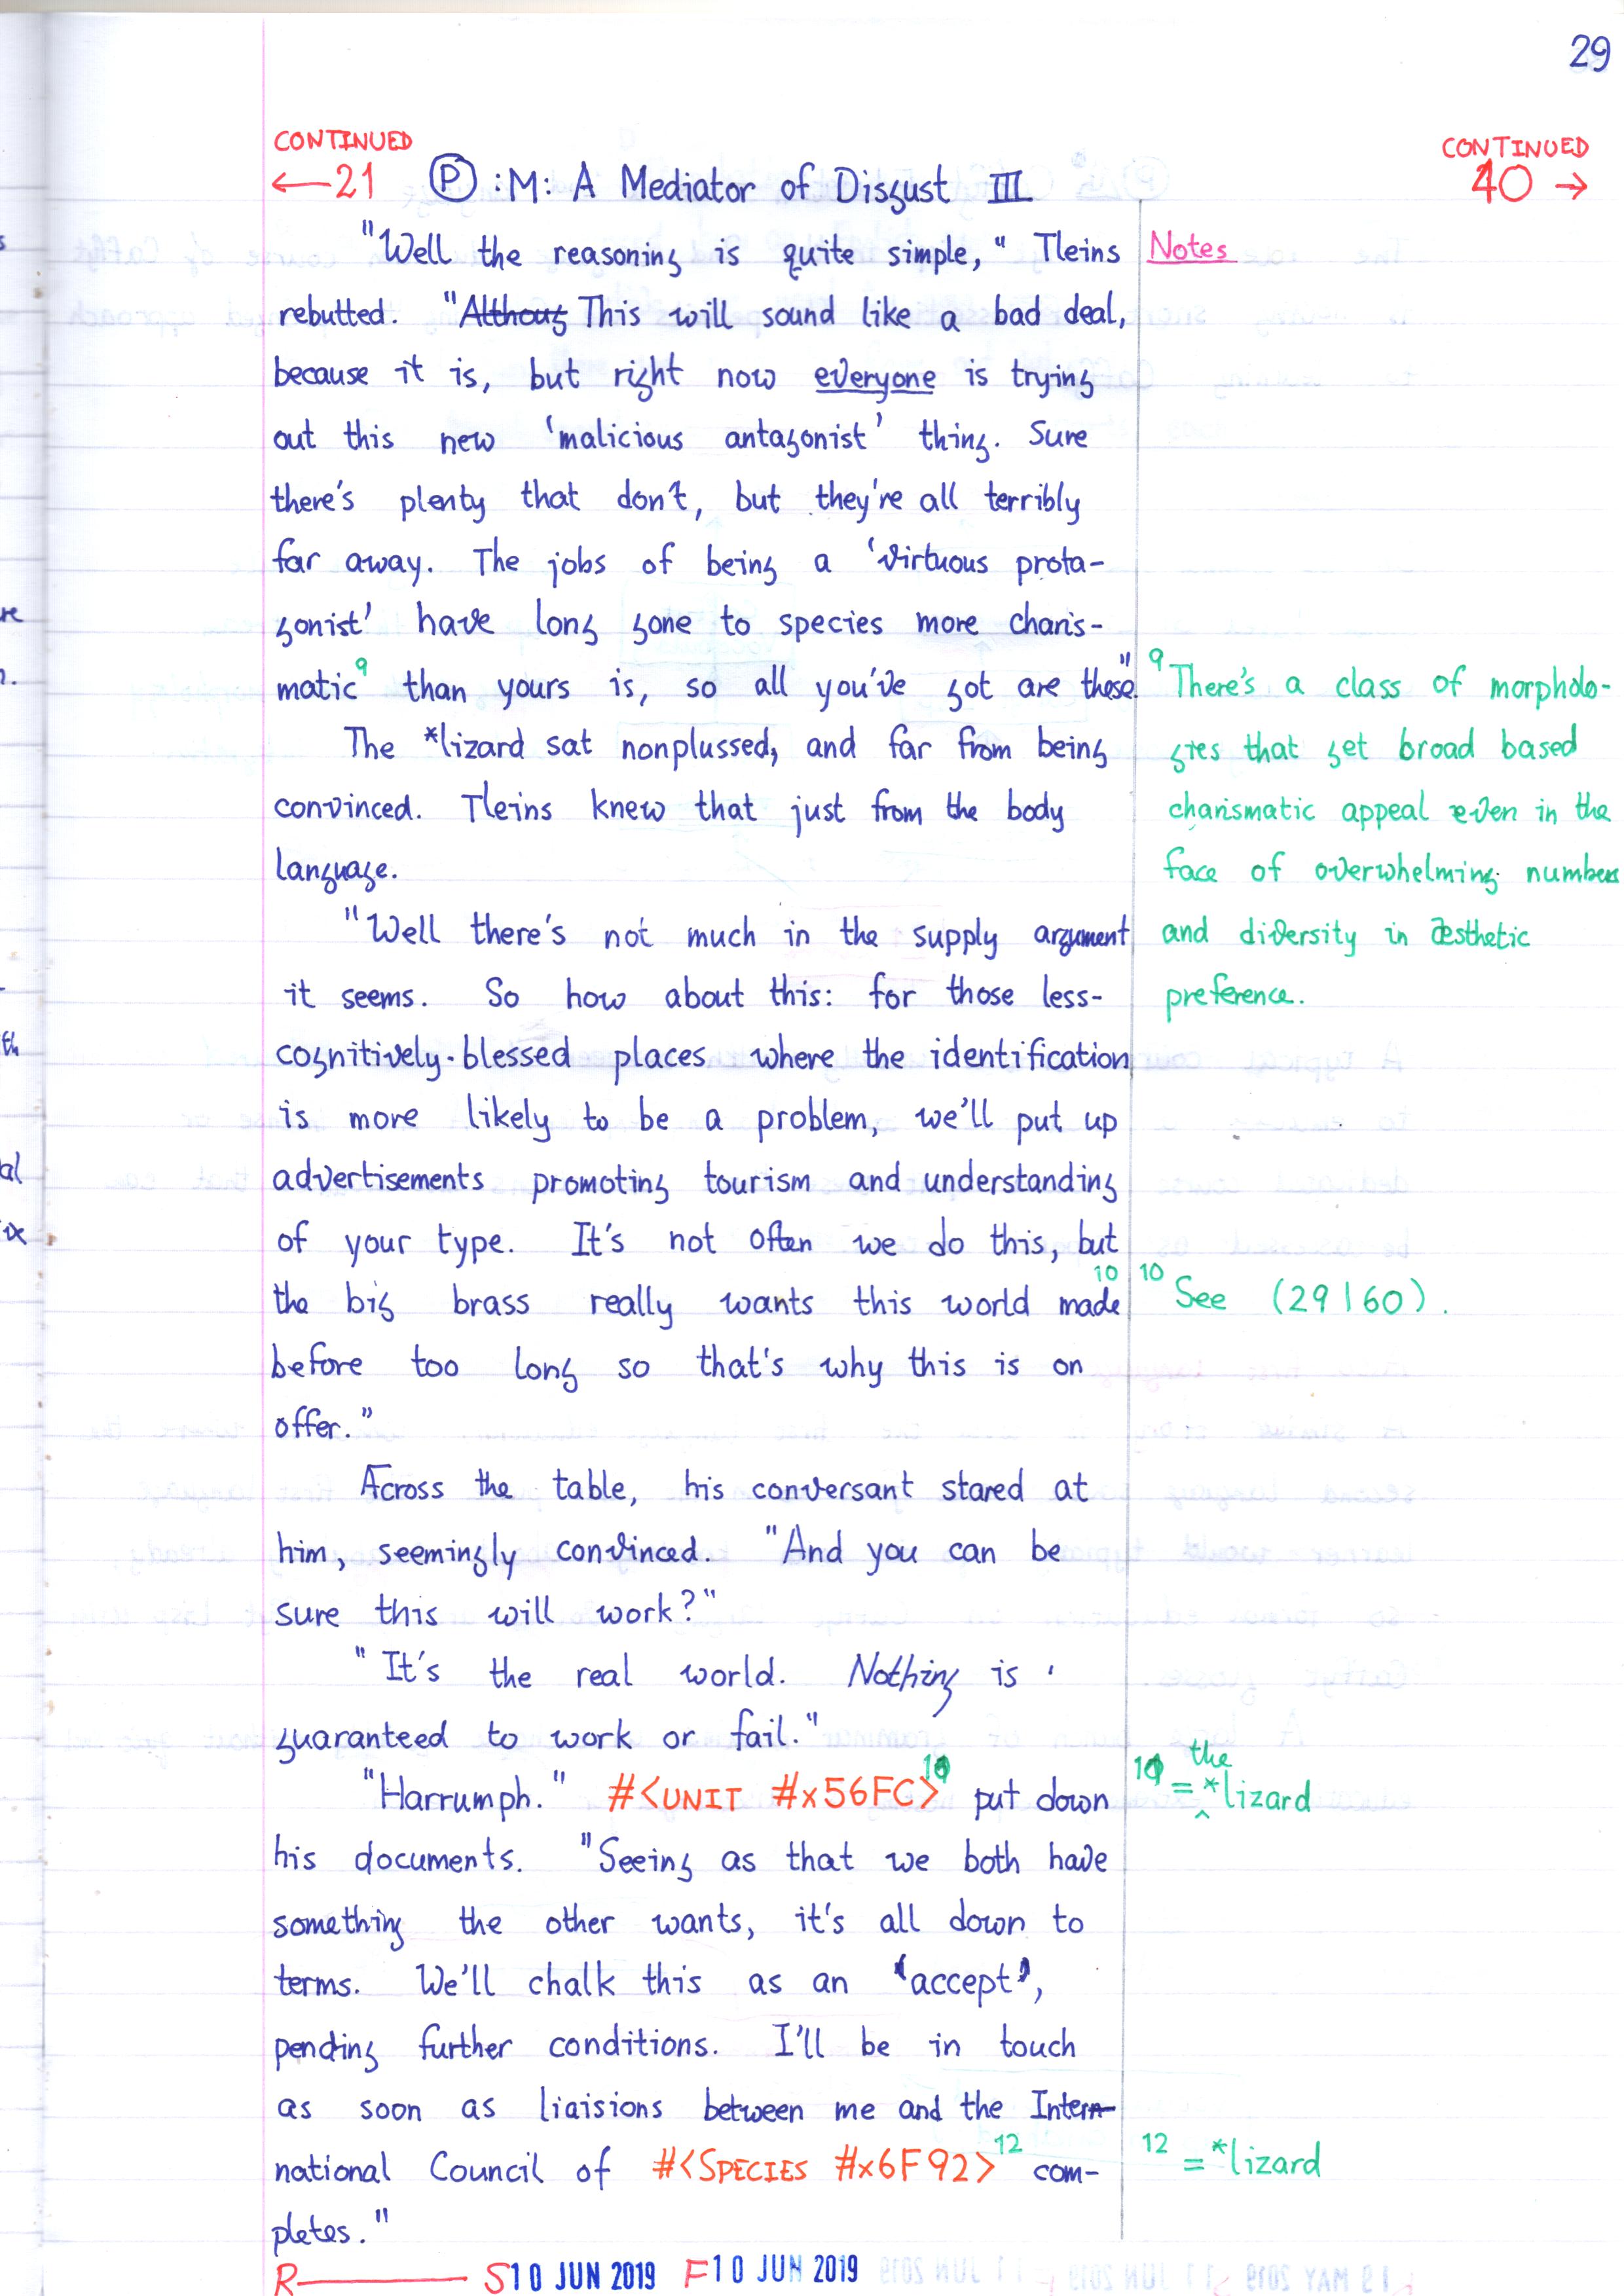 29
CONTINUED
←21
CONTINUED
40 →
Ⓟ :M: A Mediator of Disgust III
"Well the reasoning is quite simple," Tleins
rebutted. "Althoug This will sound like a bad deal,
because it is, but right now everyone is trying
out this new 'malicious antagonist' thing. Sure
there's plenty that don't, but they're all terribly
far away. The jobs of being a 'virtuous prota-
gonist' have long gone to species more charis-
matic⁹ than yours is, so all you've got are these."
The *lizard sat nonplussed, and far from being
convinced. Tleins knew that just from the body
language.
"Well there's not much in the supply argument
it seems. So how about this: for those less-
cognitively-blessed places where the identification
is more likely to be a problem, we'll put up
advertisements promoting tourism and understanding
of your type. It's not often we do this, but
the big brass really wants this world made¹⁰
before too long so that's why this is on
offer."
Across the table, his conversant stared at
him, seemingly convinced. "And you can be
sure this will work?"
"It's the real world. Nothing is
guaranteed to work or fail."
"Harrumph." #<UNIT #x56FC> put down
his documents. "Seeing as that we both have
something the other wants, it's all down to
terms. We'll chalk this as an 'accept',
pending further conditions. I'll be in touch
as soon as liaisions between me and the Inter-
national Council of #<SPECIES #x6F92>¹² com-
pletes."
Notes
⁹ There's a class of morpholo-
gies that get broad based
charismatic appeal even in the
face of overwhelming numbers
and diversity in æsthetic
preference.
¹⁰ See (29160).
= the *lizard
¹² = *lizard
R S 10 JUN 2019 F 10 JUN 2019